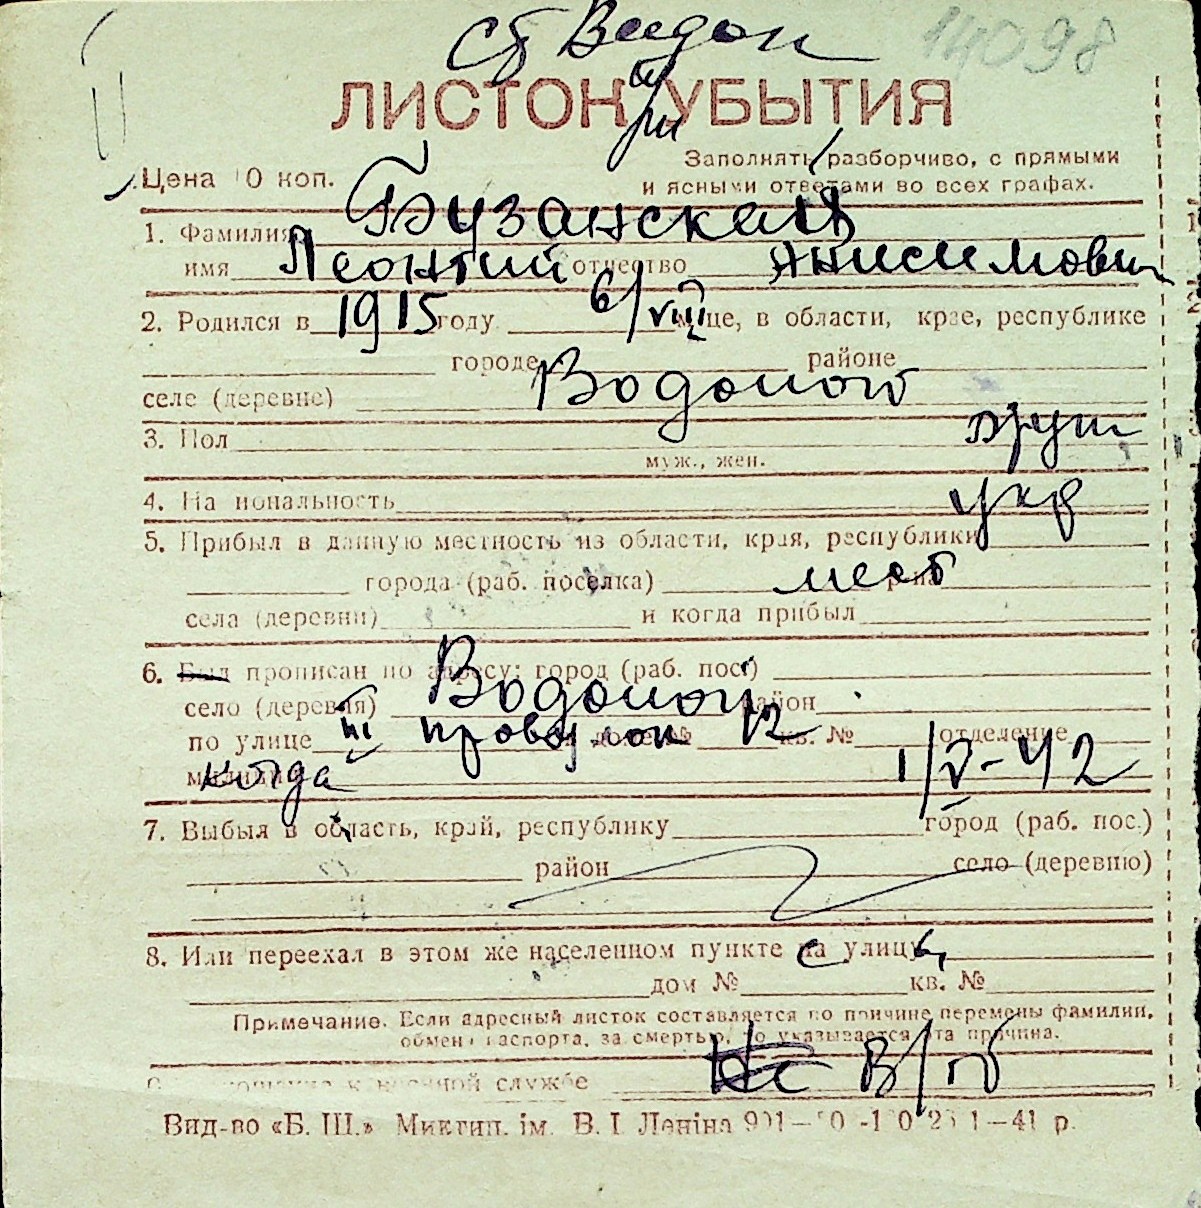 14098
ЛИСТОК УБЫТИЯ
Заполнять разборчиво, с прямыми
Цена 0 коп.
и ясными ответами во всех графах.
1. Фамилия Бузанский
имя Леонтий отчество Анисимович
2. Родился в 1915 году 6/VIII м-це, в области, крае, республике
городе районе
селе (деревне) Водопой
3. Пол
муж., жен.
4. Национальность укр
5. Прибыл в данную местность из области, края, республики
города (раб. поселка) мест р-на
села (деревни) и когда прибыл
6. Был прописан по адресу: город (раб. пос.)
село (деревня) Водопой район
по улице III дом № 12 кв. № отделение
милиции когда 1/V-42
7. Выбыл в область, край, республику город (раб. пос.)
район село (деревню)
8. Или переехал в этом же населенном пункте на улицу
дом № кв. №
Примечание. Если адресный листок составляется по причине перемены фамилии,
обмена паспорта, за смертью, то указывается эта причина.
военной службе В/об
Вид-во «Б. Ш.» Миктип. ім. В. І Леніна 41 р.